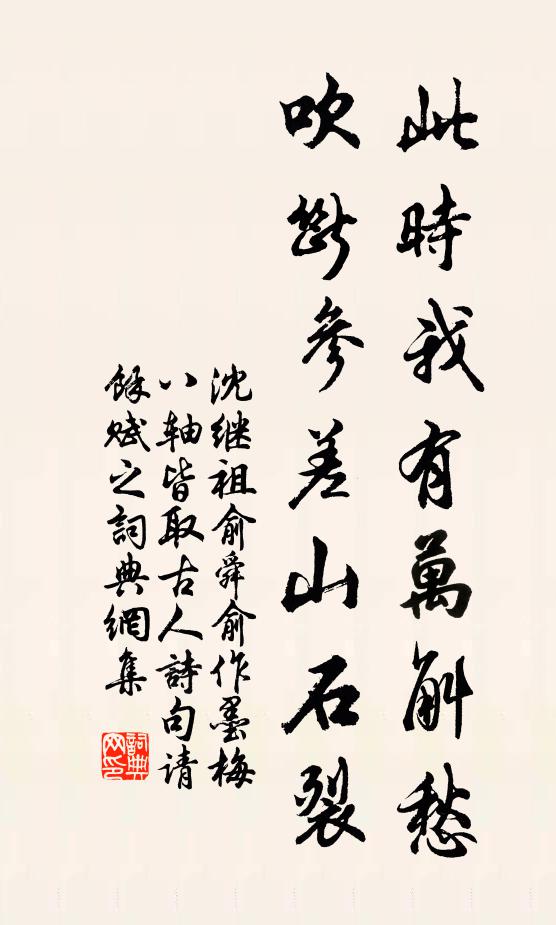 此時我有萬斛愁
吹斷參差山石裂
沈继祖俞舜俞作墨梅
八轴皆取古人詩句请
餘赋之詞典網集
詞典网印